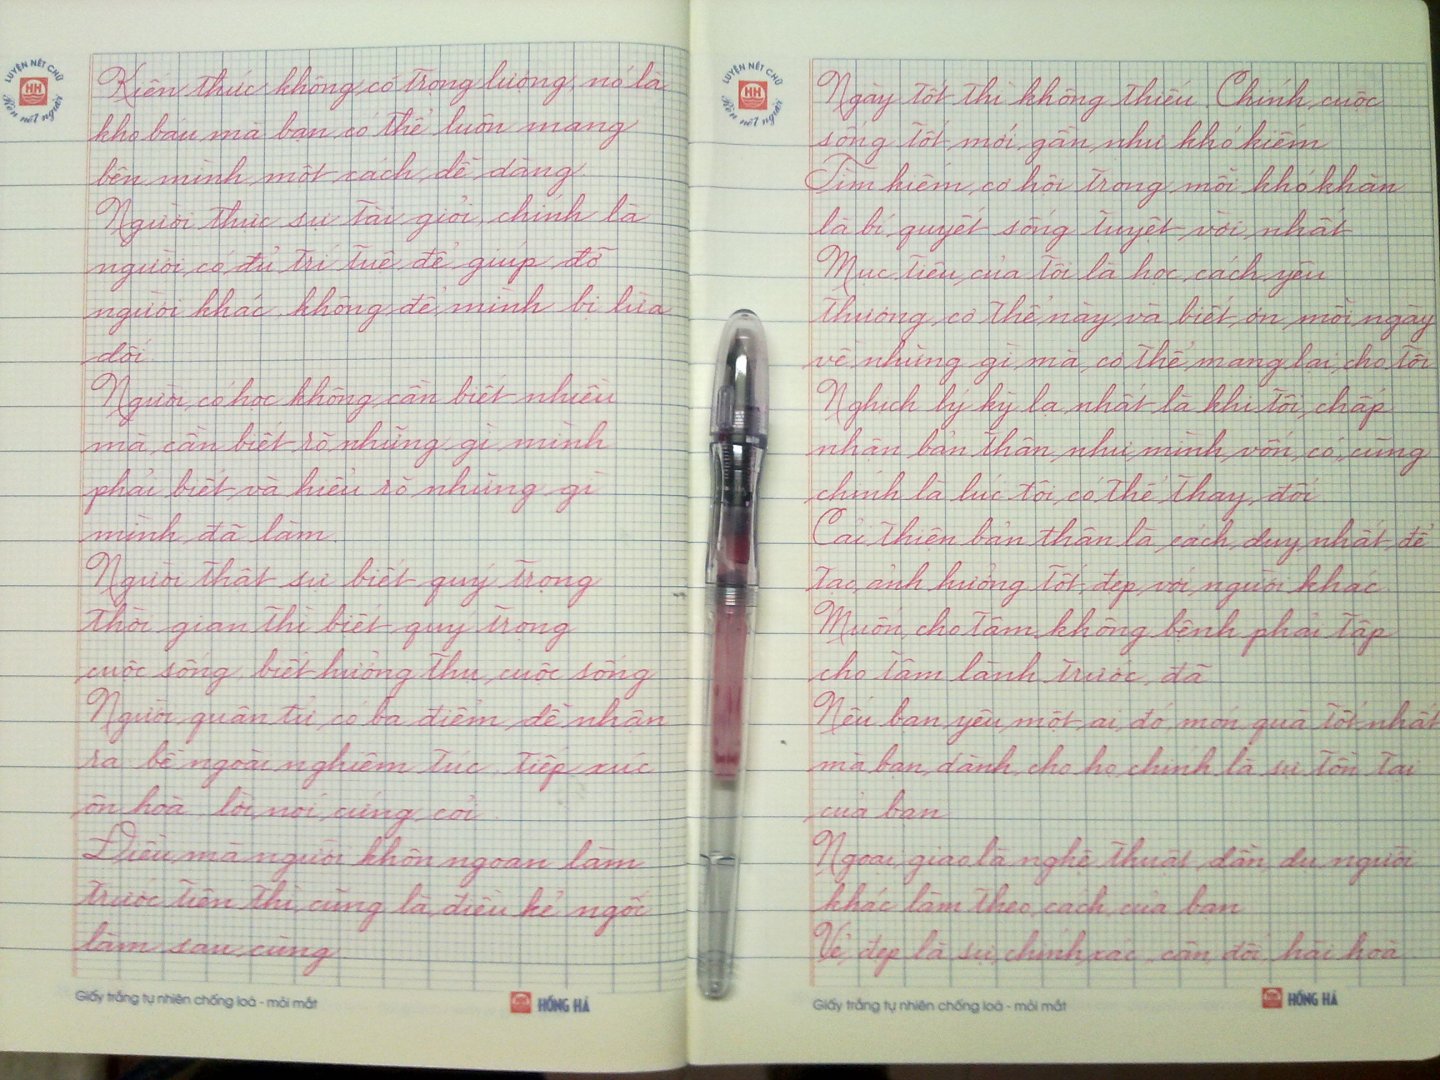 LUYỆN NÉT CHỮ
Rèn nết người
Kiến thức không có trọng lượng, nó là
kho báu mà bạn có thể luôn mang
bên mình một cách dễ dàng
Người thực sự tài giỏi, chính là
người có đủ trí tuệ để giúp đỡ
người khác không để mình bị lừa
dối.
Người có học không cần biết nhiều
mà cần biết rõ những gì mình
phải biết và hiểu rõ những gì
mình đã làm.
Người thật sự biết quý trọng
thời gian thì biết quý trọng
cuộc sống, biết hưởng thụ cuộc sống
Người quân tử có ba điểm để nhận
ra bề ngoài nghiêm túc, tiếp xúc
ôn hoà lời nói cứng cỏi.
Điều mà người khôn ngoan làm
trước tiên thì cũng là điều kẻ ngốc
làm sau cùng
Giấy trắng tự nhiên chống loá - mỏi mắt
HH HỒNG HÀ
LUYỆN NÉT CHỮ
HH
Rèn nết người
Ngày tốt thì không thiếu. Chính cuộc
sống tốt mới gần như khó kiếm
Tìm kiếm cơ hội trong mỗi khó khăn
là bí quyết sống tuyệt vời nhất
Mục tiêu của tôi là học cách yêu
thương cơ thể này và biết ơn mỗi ngày
về những gì mà cơ thể mang lại cho tôi
Nghịch lý kỳ lạ nhất là khi tôi chấp
nhận bản thân như mình vốn có, cũng
chính là lúc tôi có thể thay đổi
Cải thiện bản thân là cách duy nhất để
tạo ảnh hưởng tốt đẹp với người khác.
Muốn cho tâm không bệnh phải tập
cho tâm lành trước đã
Nếu bạn yêu một ai đó, món quà tốt nhất
mà bạn dành cho họ chính là sự tồn tại
của bạn
Ngoại giao là nghệ thuật dẫn dụ người
khác làm theo cách của bạn
Vẻ đẹp là sự chính xác, cân đối hài hoà
Giấy trắng tự nhiên chống loá - mỏi mắt
HỒNG HÀ